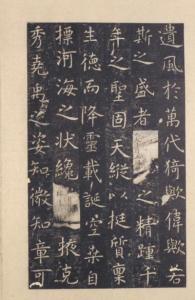 遺風於萬代猗歟偉歟若
斯之盛者之精踵千
年之聖固天縱以挺質稟
生德而降靈載誕空桑自
摽河海之狀纔掖克
秀堯禹之姿知微知章可